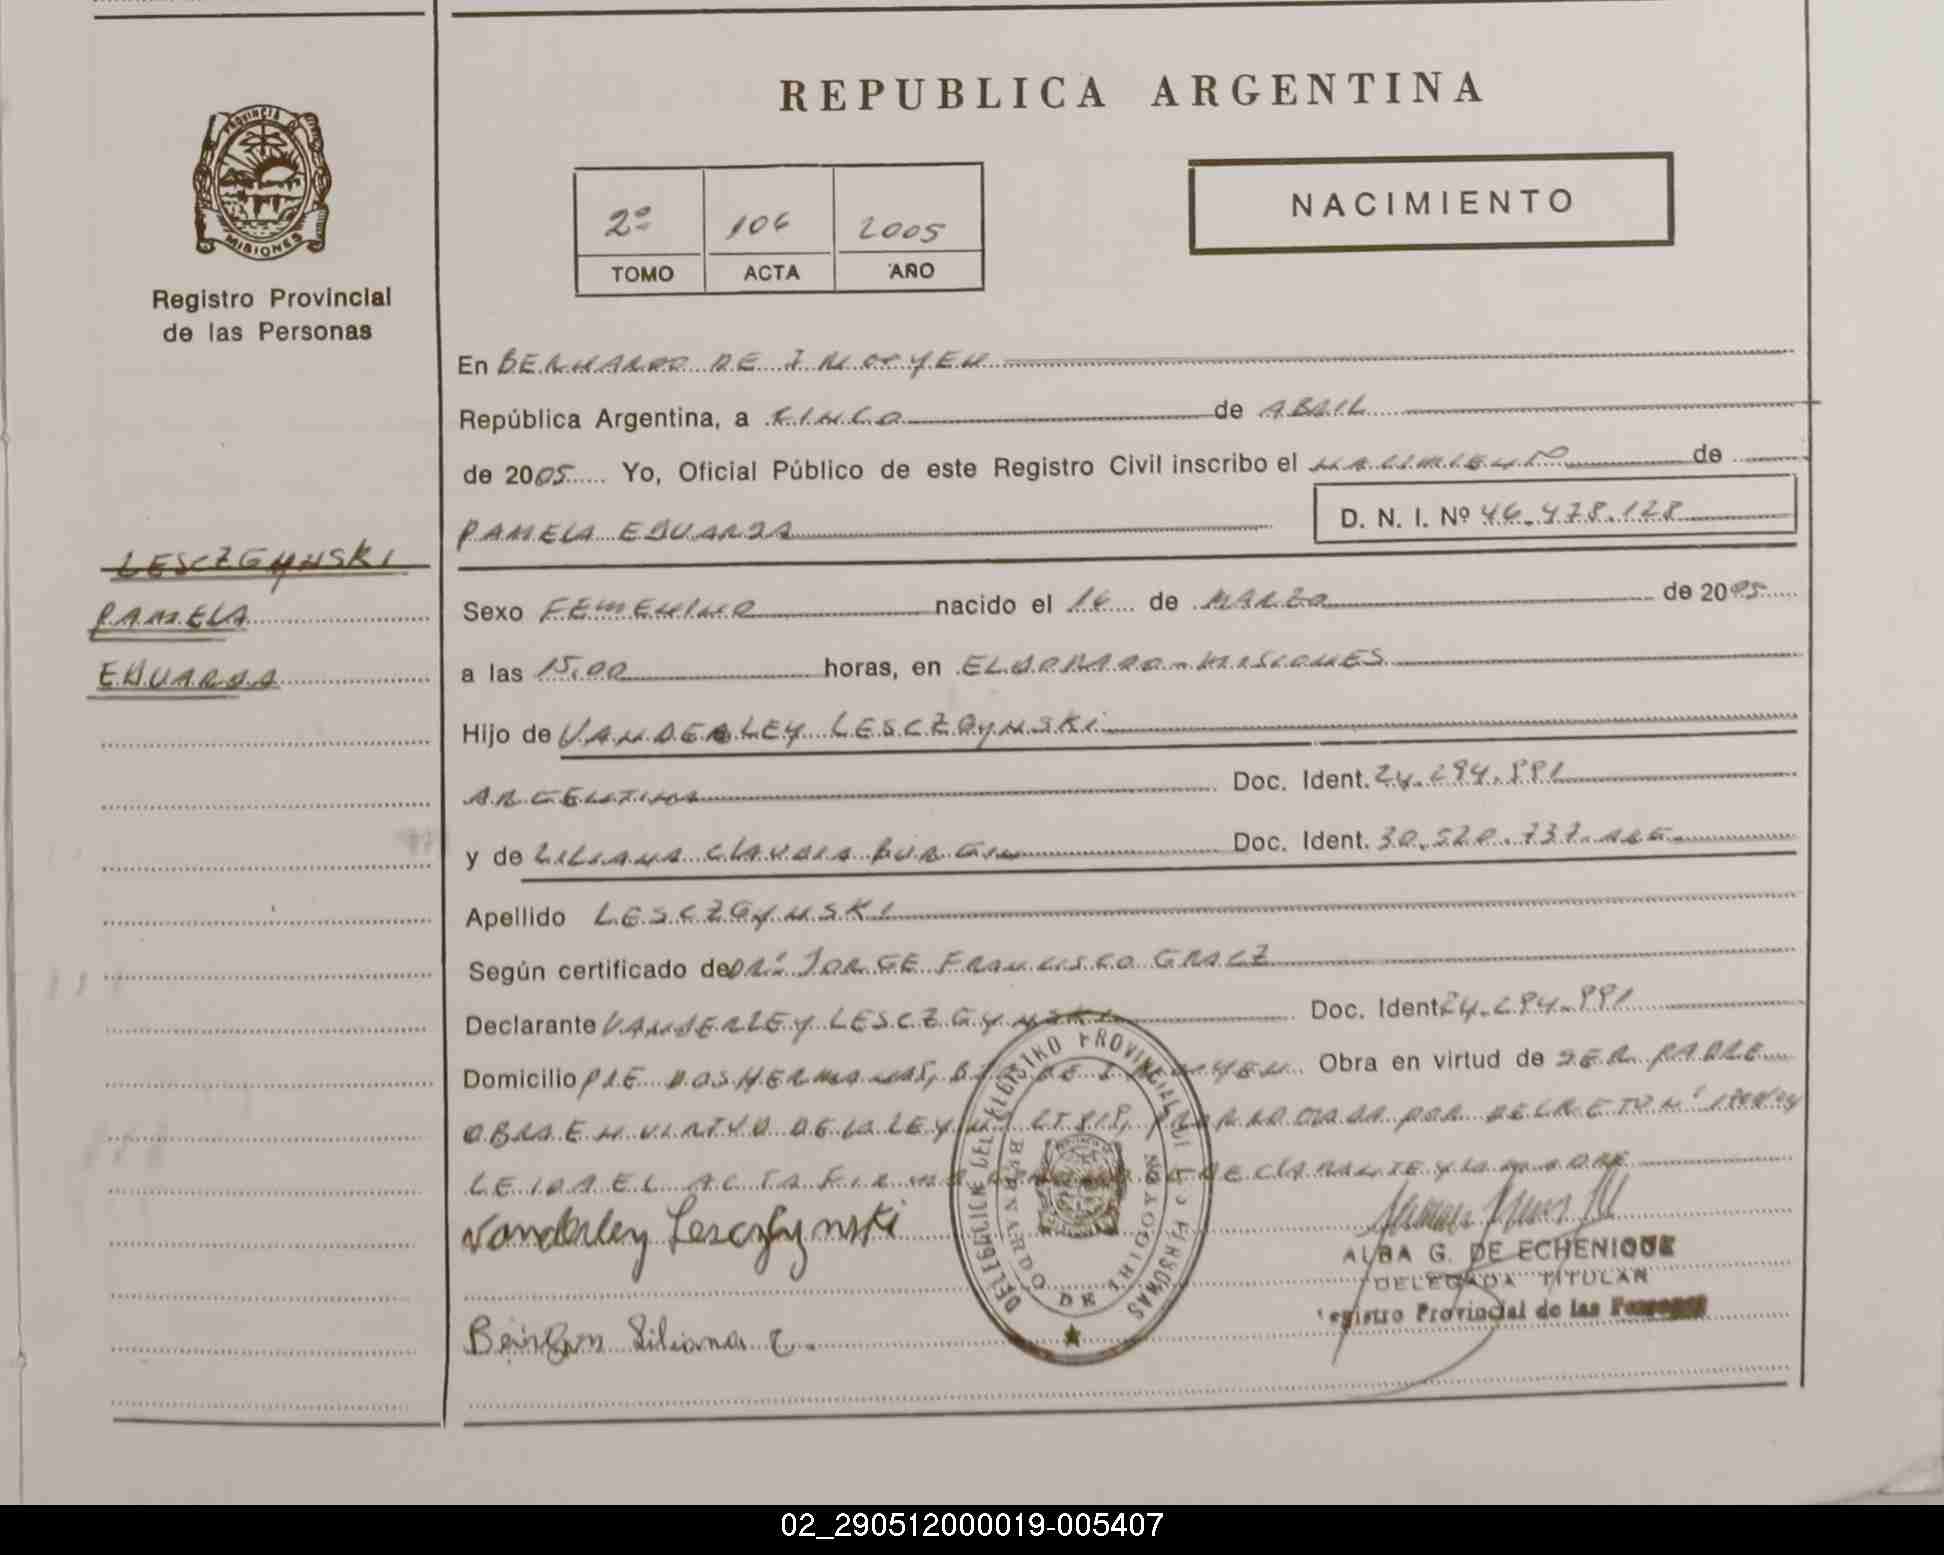 REPUBLICA ARGENTINA
PROVINCIA DE
MISIONES
Registro Provincial
de las Personas
2º 106 2005
TOMO ACTA AÑO
NACIMIENTO
En BERNARDO DE IRIGOYEN
República Argentina, a CINCO de ABRIL
de 2005 Yo, Oficial Público de este Registro Civil inscribo el NACIMIENTO de
PAMELA EDUARDA
D. N. I. Nº 46.478.128
LESCZGYNSKI
PAMELA
EDUARDA
Sexo FEMENINO nacido el 16 de MARZO de 2005
a las 15,00 horas, en ELDORADO - MISIONES
Hijo de VANDERLEY LESCZGYNSKI
ARGENTINA Doc. Ident. 24.294.991
y de LILIANA CLAUDIA Doc. Ident. 30.520.737. ARG.
Apellido LESCZGYNSKI
Según certificado de DR. JORGE FRANCISCO GRACZ
Declarante VANDERLEY LESCZGYNSKI Doc. Ident. 24.294.991
Domicilio PJE DOS HERMANAS, BDO DE IRIGOYEN Obra en virtud de SER PADRE
OBRA EN VIRTUD DE LA LEY POR DECRETO Nº
LEIDA EL ACTA FIRMA DECLARANTE Y LA MADRE
Vanderley Lesczgynski
Liliana C.
DELEGACION DEL REGISTRO PROVINCIAL DE LAS PERSONAS
BERNARDO DE IRIGOYEN
ALBA G. DE ECHENIQUE
DELEGADA TITULAR
Registro Provincial de las Personas
02_290512000019-005407